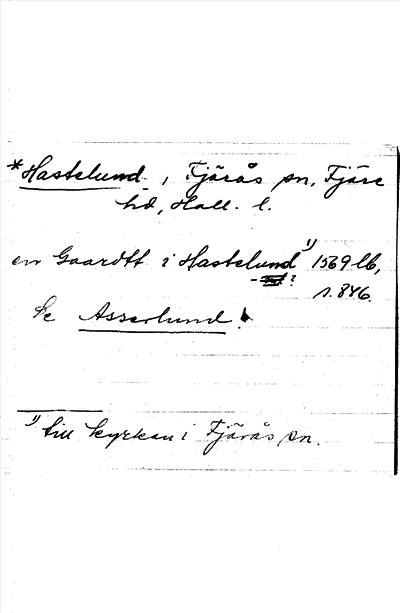 *Hastelund, Fjärås sn, Fjäre
hd, Hall. l.
en Gaardtt i Hastelund 1) 1569 lb,
- ?
s. 846.
Se Asserlund!
1) till kyrkan i Fjärås sn.